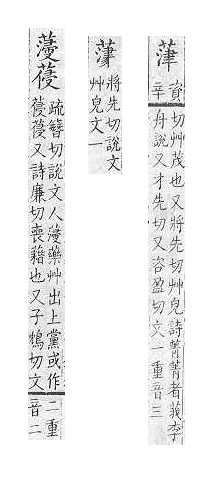 葏
資
辛
切艸茂也又將先切艸皃詩菁菁者莪李
舟說又才先切又咨盈切文一重音三
將先切說文
艸皃文一
薓葠
疏簪切說文人薓藥艸出上黨或作
葠葠又詩廉切喪藉也又子鴆切文
二重
音二